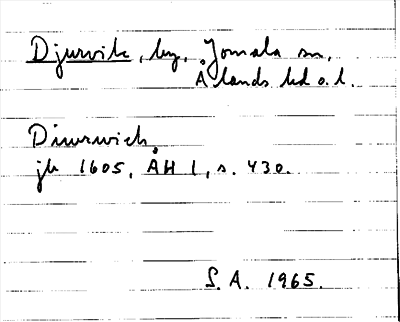 Djurvik, by, Jomala sn,
Ålands hd o. l.
Diwrwich.
jb 1605, ÅH 1, s. 430.
S. A. 1965.